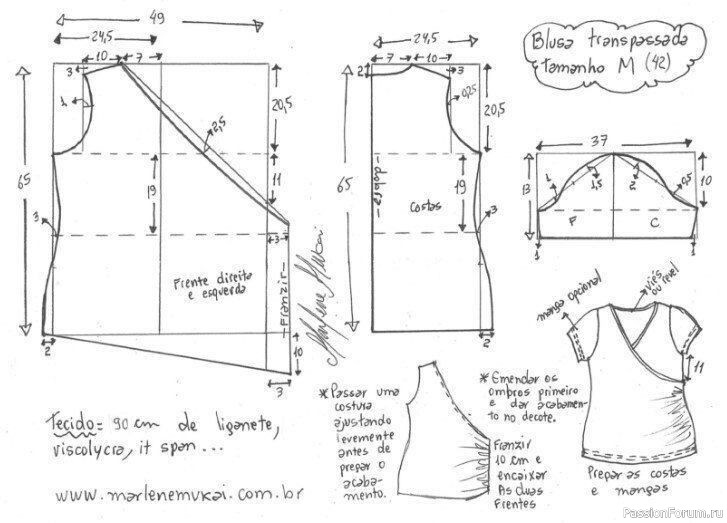 49
24,5
10
7
3
1
2,5
20,5
11
65
19
3
3
Frente direita
e esquerda
Franzir
Marlene Mukai
2
10
3
24,5
7
10
3
2
0,25
20,5
11
65
dobra
19
Costas
3
2
Blusa transpassada
tamanho M (42)
37
13
10
1
1,5
2
0,5
F
C
1
1
manga opcional
viés
ou revel
11
Preparar as costas
e mangas
* Passar uma
costura
ajustando
levemente
antes de
pregar o
acaba-
mento.
* Emendar os
ombros primeiro
e dar acabamen-
to no decote.
Franzir
10 cm e
encaixar
As duas
Frentes
Tecido = 90 cm de liganete,
viscolycra, it span...
www.marlenemukai.com.br
PassionForum.ru